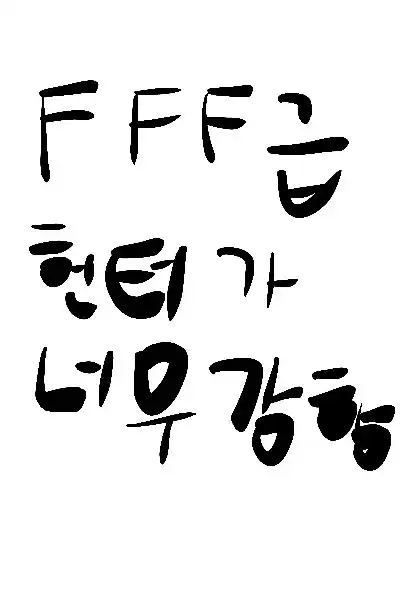 FFF급
헌터가
너무 강함